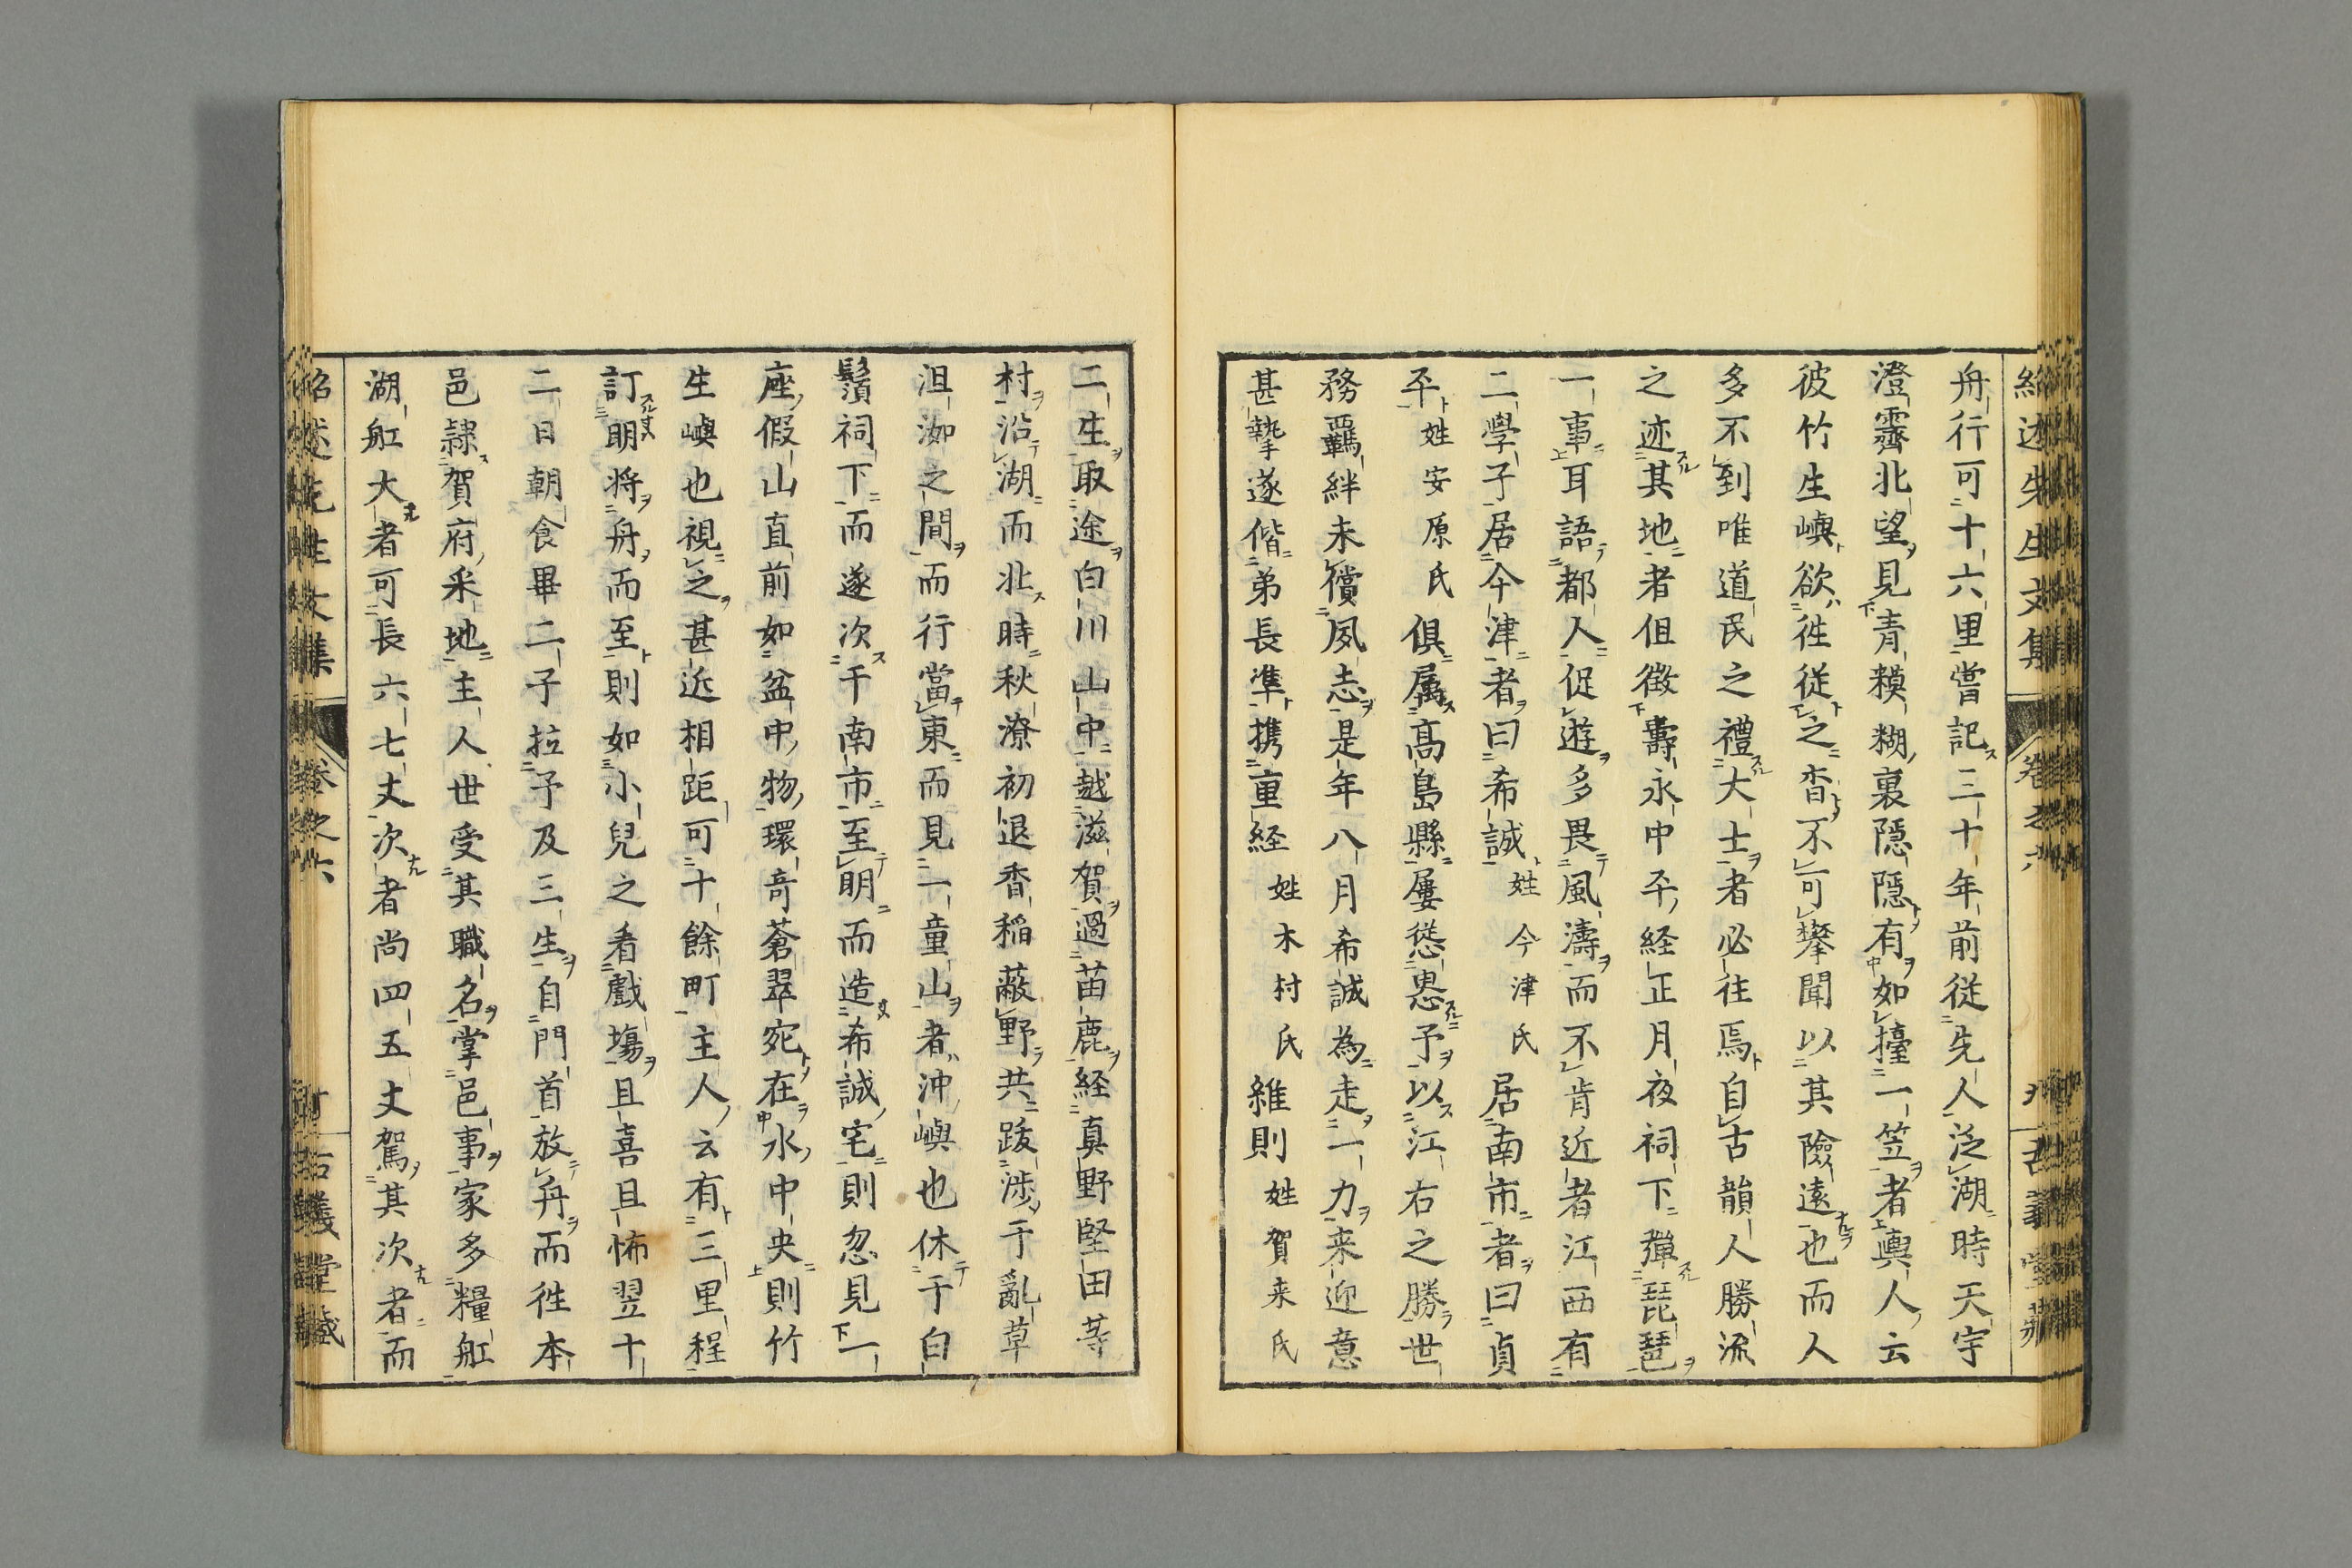 紹述先生文集 卷之六 九 古義堂藏
舟行可十六里嘗記三十年前従先人泛湖時天宇
澄霽北望見青糢糊裏隠隠有如擡一笠者輿人云
彼竹生嶼欲徃従之杳不可攀聞以其險遠也而人
多不到唯道民之禮大士者必往焉自古韻人勝流
之迹其地者但徴壽永中平経正月夜祠下彈琵琶
一事耳語都人促遊多畏風濤而不肯近者江西有
二學子居今津者曰希誠姓今津氏居南市者曰貞
平姓安原氏俱属髙島縣屢慫慂予以江右之勝世
務羈絆未償夙志是年八月希誠為走一力来迎意
甚摯遂偕弟長準携重経姓木村氏維則姓賀来氏
二生取途白川山中越滋賀過苗鹿経真野堅田䓁
村沿湖而北時秋潦初退杳稲蔽野共跋渉于亂草
沮洳之間而行當東而見一童山者沖嶼也休于白
鬚祠下而遂次于南市至明而造希誠宅則忽見一
座假山直前如盆中物環竒蒼翠宛在水中央則竹
生嶼也視之甚近相距可十餘町主人云有三里程
訂明将舟而至則如小兒之看戲塲且喜且怖翌十
二日朝食畢二子拉予及三生自門首放舟而徃本
邑隷賀府采地主人世受其職名掌邑事家多糧舡
湖舡大者可長六七丈次者尚四五丈駕其次者而
紹述先生文集 卷之六 古義堂藏